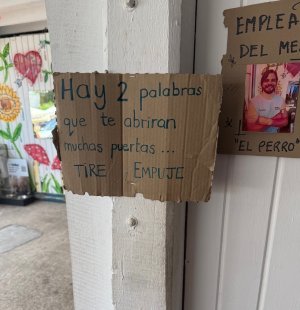 Hay 2 palabras
que te abriran
muchas puertas...
TIRE EMPUJE
EMPLEA
DEL MES
"EL PERRO"